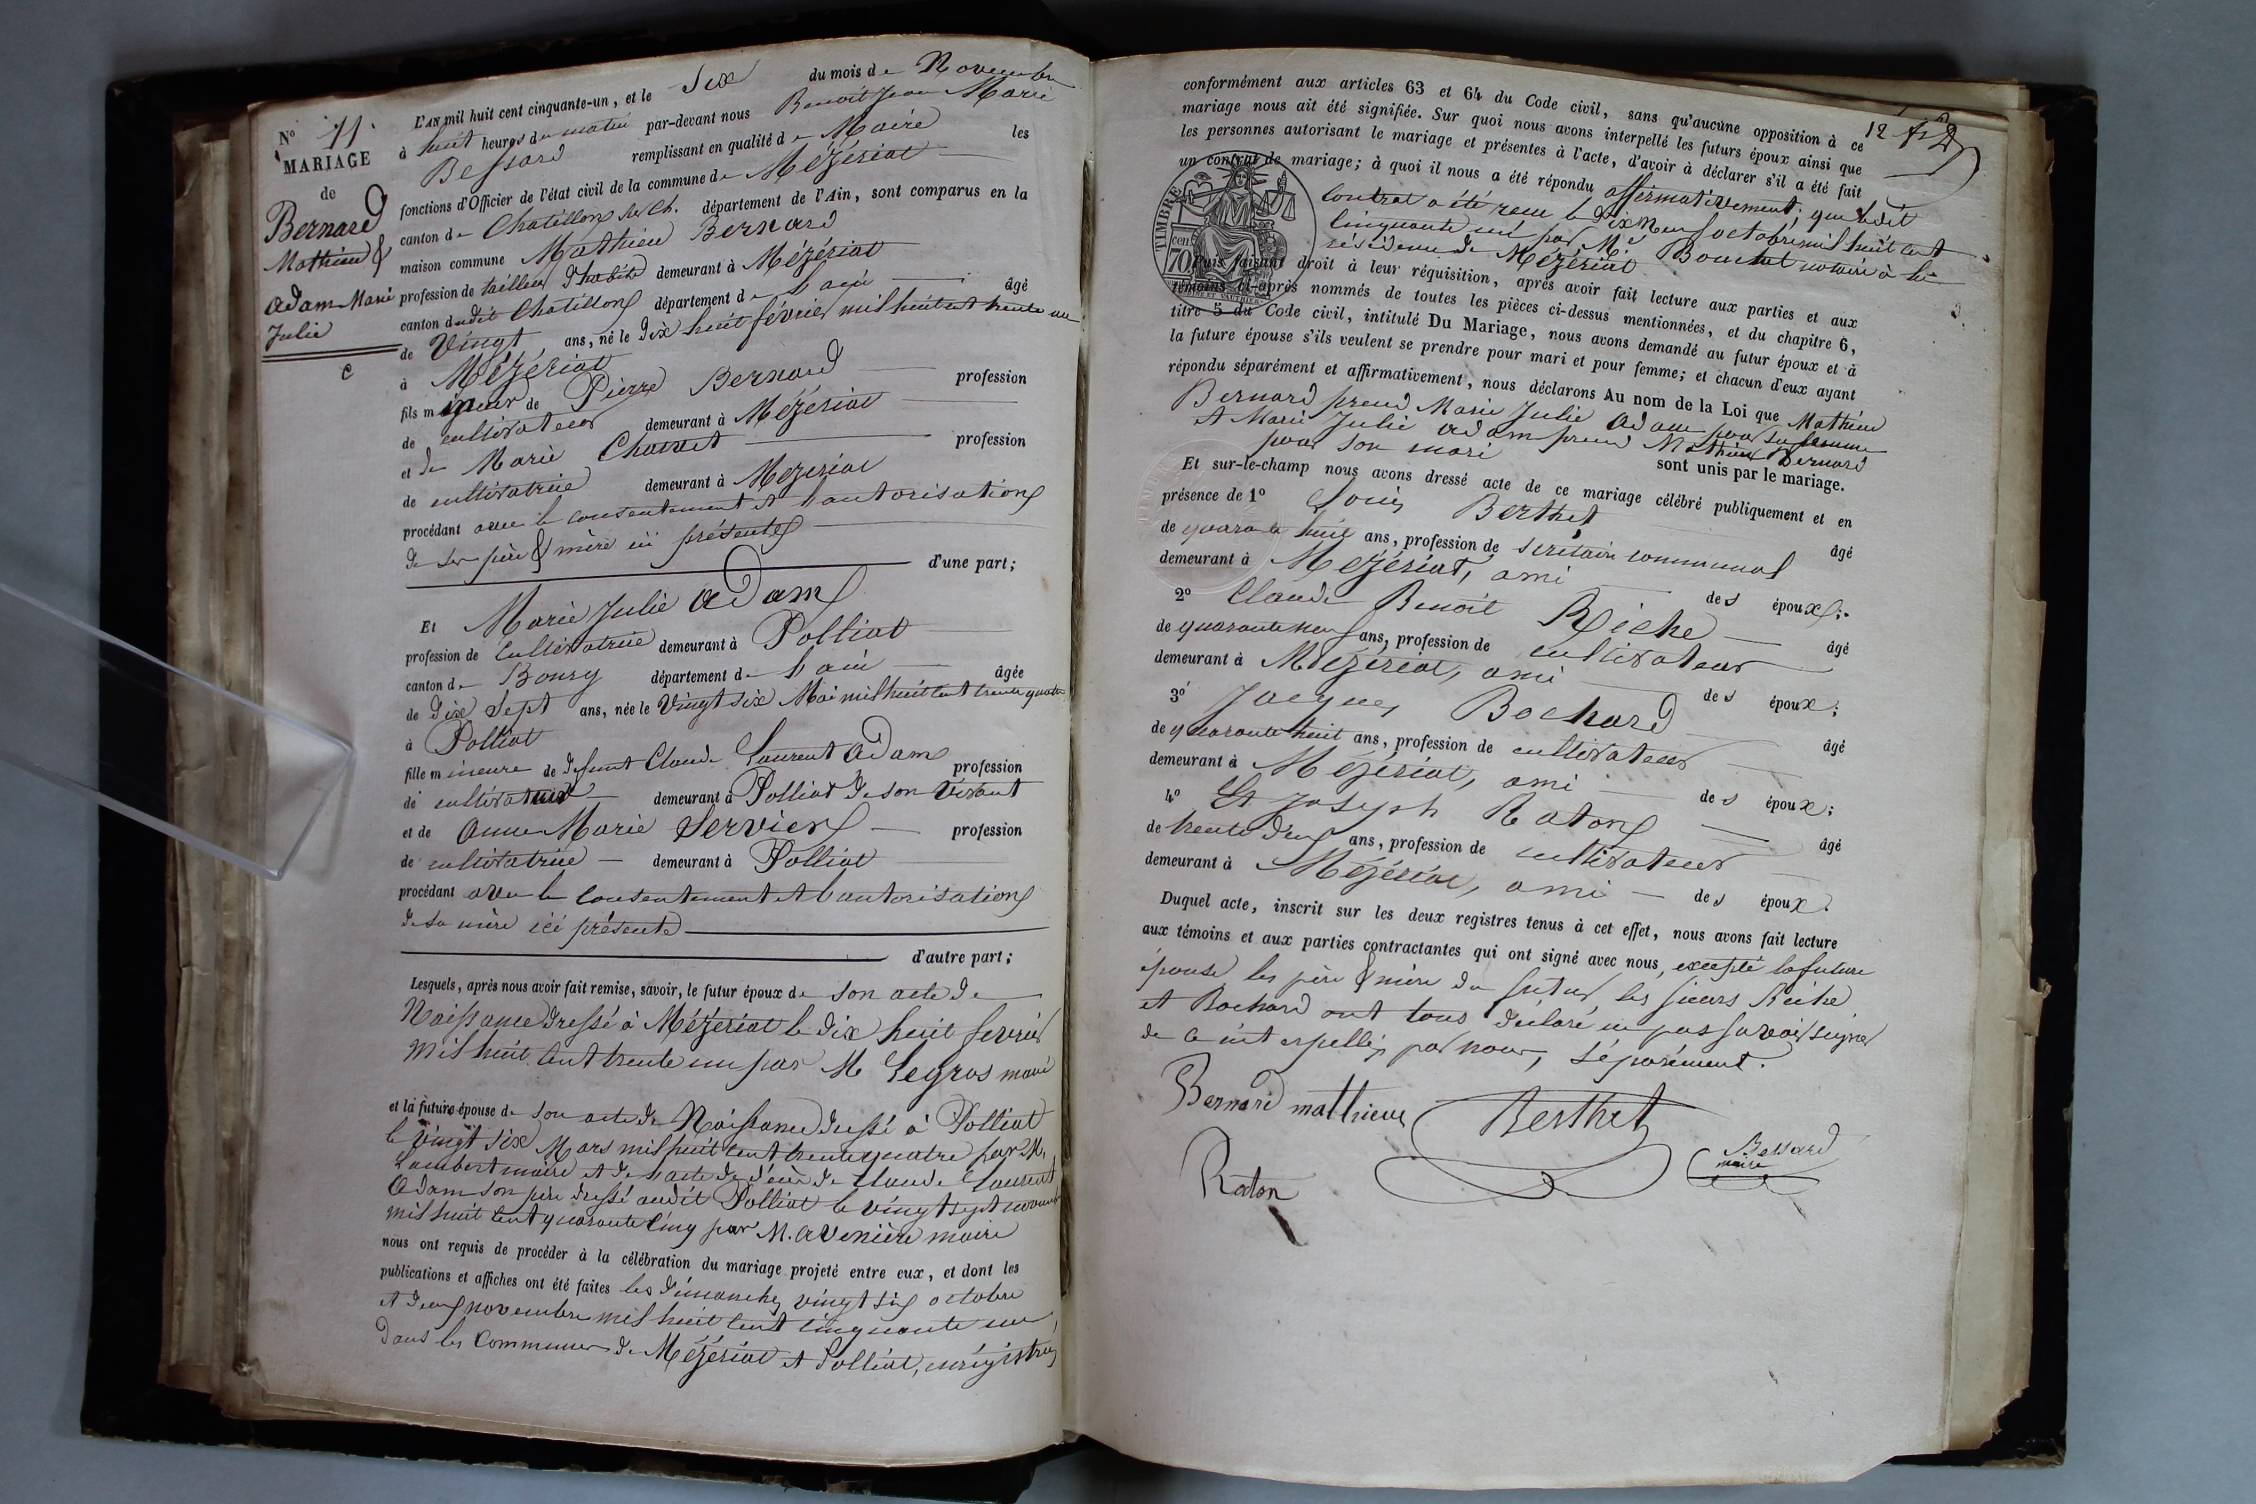 N° 11.
MARIAGE
de
Bernard
Mathieu &
Adam Marie
Julie
c
L'AN mil huit cent cinquante-un, et le Six du mois de Novembre
à huit heures du matin par-devant nous Benoit Jean Marie
Bessard remplissant en qualité de Maire les
fonctions d'Officier de l'état civil de la commune de Mézériat
canton de Chatillon sur Ch. département de l'Ain, sont comparus en la
maison commune Mathieu Bernard
profession de tailleur d'habits demeurant à Mézériat
canton dudit Chatillon département de l'ain âgé
de Vingt ans, né le dix huit février mil huit cent trente un
à Mézériat
fils mineur de Pierre Bernard profession
de cultivateur demeurant à Mézériat
et de Marie Chanet profession
de cultivatrice demeurant à Mézériat
procédant avec le consentement et l'autorisation
de ses père & mère ici présents
d'une part;
Et Marie Julie Adam
profession de Cultivatrice demeurant à Polliat
canton de Bourg département de l'ain âgée
de dix sept ans, née le Vingt six Mai mil huit cent trente quatre
à Polliat
fille mineure de defunt Claude Laurent Adam profession
de cultivateur demeurant à Polliat de son vivant
et de Anne Marie Servier profession
de cultivatrice demeurant à Polliat
procédant avec le consentement et l'autorisation
de sa mère ici présente
d'autre part;
Lesquels, après nous avoir fait remise, savoir, le futur époux de son acte de
Naissance dressé à Mézériat le dix huit fevrier
mil huit cent trente un par M Legros maire
et la future épouse de son acte de Naissance dressé à Polliat
le vingt six Mars mil huit cent trente quatre par M.
Lambert maire et de l'acte de décès de Claude Laurent
Adam son père dressé audit Polliat le vingt sept novembre
mil huit cent quarante cinq par M. Avenière maire
nous ont requis de procéder à la célébration du mariage projeté entre eux, et dont les
publications et affiches ont été faites les dimanches vingt six octobre
et deux novembre mil huit cent cinquante un,
dans les Communes de Mézériat et Polliat, enrégistrés
12
conformément aux articles 63 et 64 du Code civil, sans qu'aucune opposition à ce
mariage nous ait été signifiée. Sur quoi nous avons interpellé les futurs époux ainsi que
les personnes autorisant le mariage et présentes à l'acte, d'avoir à déclarer s'il a été fait
un contrat de mariage; à quoi il nous a été répondu affirmativement; que ledit
contrat a été recu le dix neuf octobre mil huit cent
cinquante un par Me Bouchet notaire à la
résidence de Mézériat
TIMBRE
70
Puis faisant droit à leur réquisition, après avoir fait lecture aux parties et aux
témoins ci-après nommés de toutes les pièces ci-dessus mentionnées, et du chapitre 6,
titre 5 du Code civil, intitulé Du Mariage, nous avons demandé au futur époux et à
la future épouse s'ils veulent se prendre pour mari et pour femme; et chacun d'eux ayant
répondu séparément et affirmativement, nous déclarons Au nom de la Loi que Mathieu
Bernard prend Marie Julie Adam pour sa femme
et Marie Julie Adam prend Mathieu Bernard
pour son mari sont unis par le mariage.
Et sur-le-champ nous avons dressé acte de ce mariage célébré publiquement et en
présence de 1° Louis Berthet âgé
de quarante huit ans, profession de secrétaire communal
demeurant à Mézériat, ami des époux;
2° Claude Benoit Riche âgé
de quarante neuf ans, profession de cultivateur
demeurant à Mézériat, ami des époux;
3° Jacques Bochard âgé
de quarante huit ans, profession de cultivateur
demeurant à Mézériat, ami des époux;
4° Et Joseph Raton âgé
de trente deux ans, profession de cultivateur
demeurant à Mézériat, ami des époux.
Duquel acte, inscrit sur les deux registres tenus à cet effet, nous avons fait lecture
aux témoins et aux parties contractantes qui ont signé avec nous, excepté la future
épouse les père & mère du futur, les sieurs Riche
et Bochard ont tous déclaré ne pas savoir signer
de ce interpellés par nous, séparément.
Bernard mathieu
Berthet
Bessard
maire
Raton